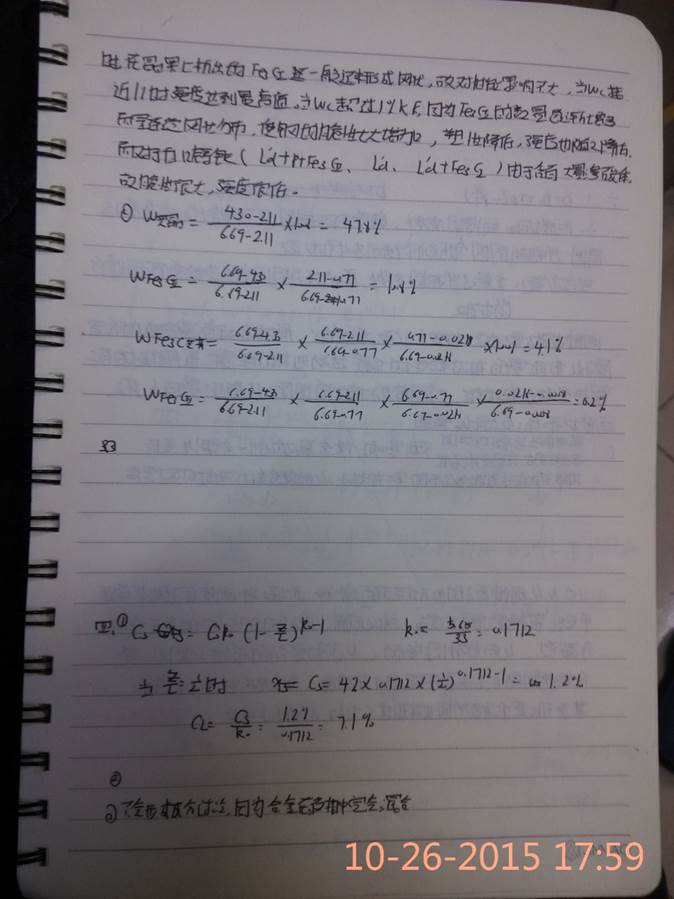 时,在晶界上析出的Fe₃CⅡ一般还未形成网状,故对性能影响不大,当Wc接
近1%时强度达到最高值。当Wc超过1%后,因为Fe₃CⅡ的数量
网状分布,使钢的脆性大大增加,塑性降低,强度也随之降低.
(L'd+P+Fe₃CⅡ、L'd、L'd+Fe₃CⅠ)由于含有大量渗碳体,
故脆性很大,强度很低。
② W共晶 = (4.30-2.11)/(6.69-2.11) ×100% = 47.8%
WFe₃CⅡ = (6.69-4.3)/(6.69-2.11) × (2.11-0.77)/(6.69-0.77) = %
WFe₃C共析 = (6.69-4.3)/(6.69-2.11) × (6.69-2.11)/(6.69-0.77) × (0.77-0.0218)/(6.69-0.0218) ×100% = 4.1%
WFe₃CⅢ = (6.69-4.3)/(6.69-2.11) × (6.69-2.11)/(6.69-0.77) × (6.69-0.77)/(6.69-0.0218) × (0.0218-0.008)/(6.69-0.008) = 0.2%
33
四.① Cs = C₀k₀(1-Z/L)^(k₀-1) k₀ = 5.65/33 = 0.1712
当 Z/L = 1/2 时 Cs = 4% × 0.1712 × (1/2)^(0.1712-1) = 1.2%
CL = Cs/k₀ = 1.2%/0.1712 = 7.1%
②
② 不会形成成分过冷,因为合金在液相中完全混合
10-26-2015 17:59